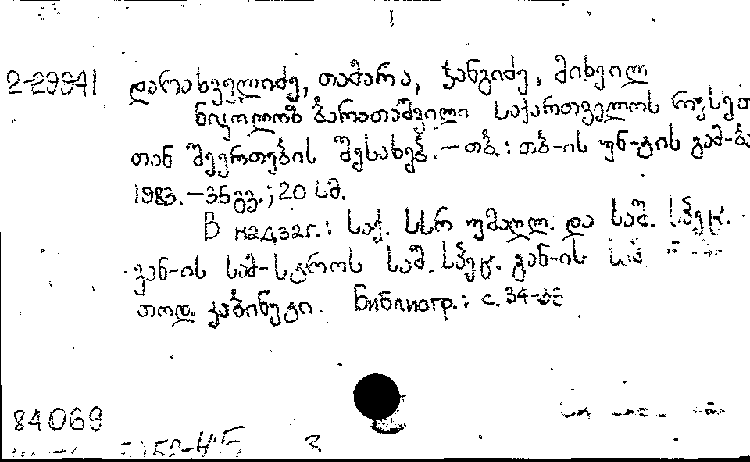 2-29941 დარახველიძე, თამარა, ჭანგიძე, მიხეილ
ნიკოლოზ ბარათაშვილი საქართველოს რუსეთ
თან შეერთების შესახებ. - თბ.: თბ-ის უნ-ტის გამ-ბა
1983. - 35 გვ.; 20 სმ.
В надзаг.: საქ. სსრ უმაღლ. და საშ. სპეც.
გან-ის სამ-სტროს საშ. სპეც. გან-ის
თოდ. კაბინეტი. Библиогр.: с. 34-35
84069